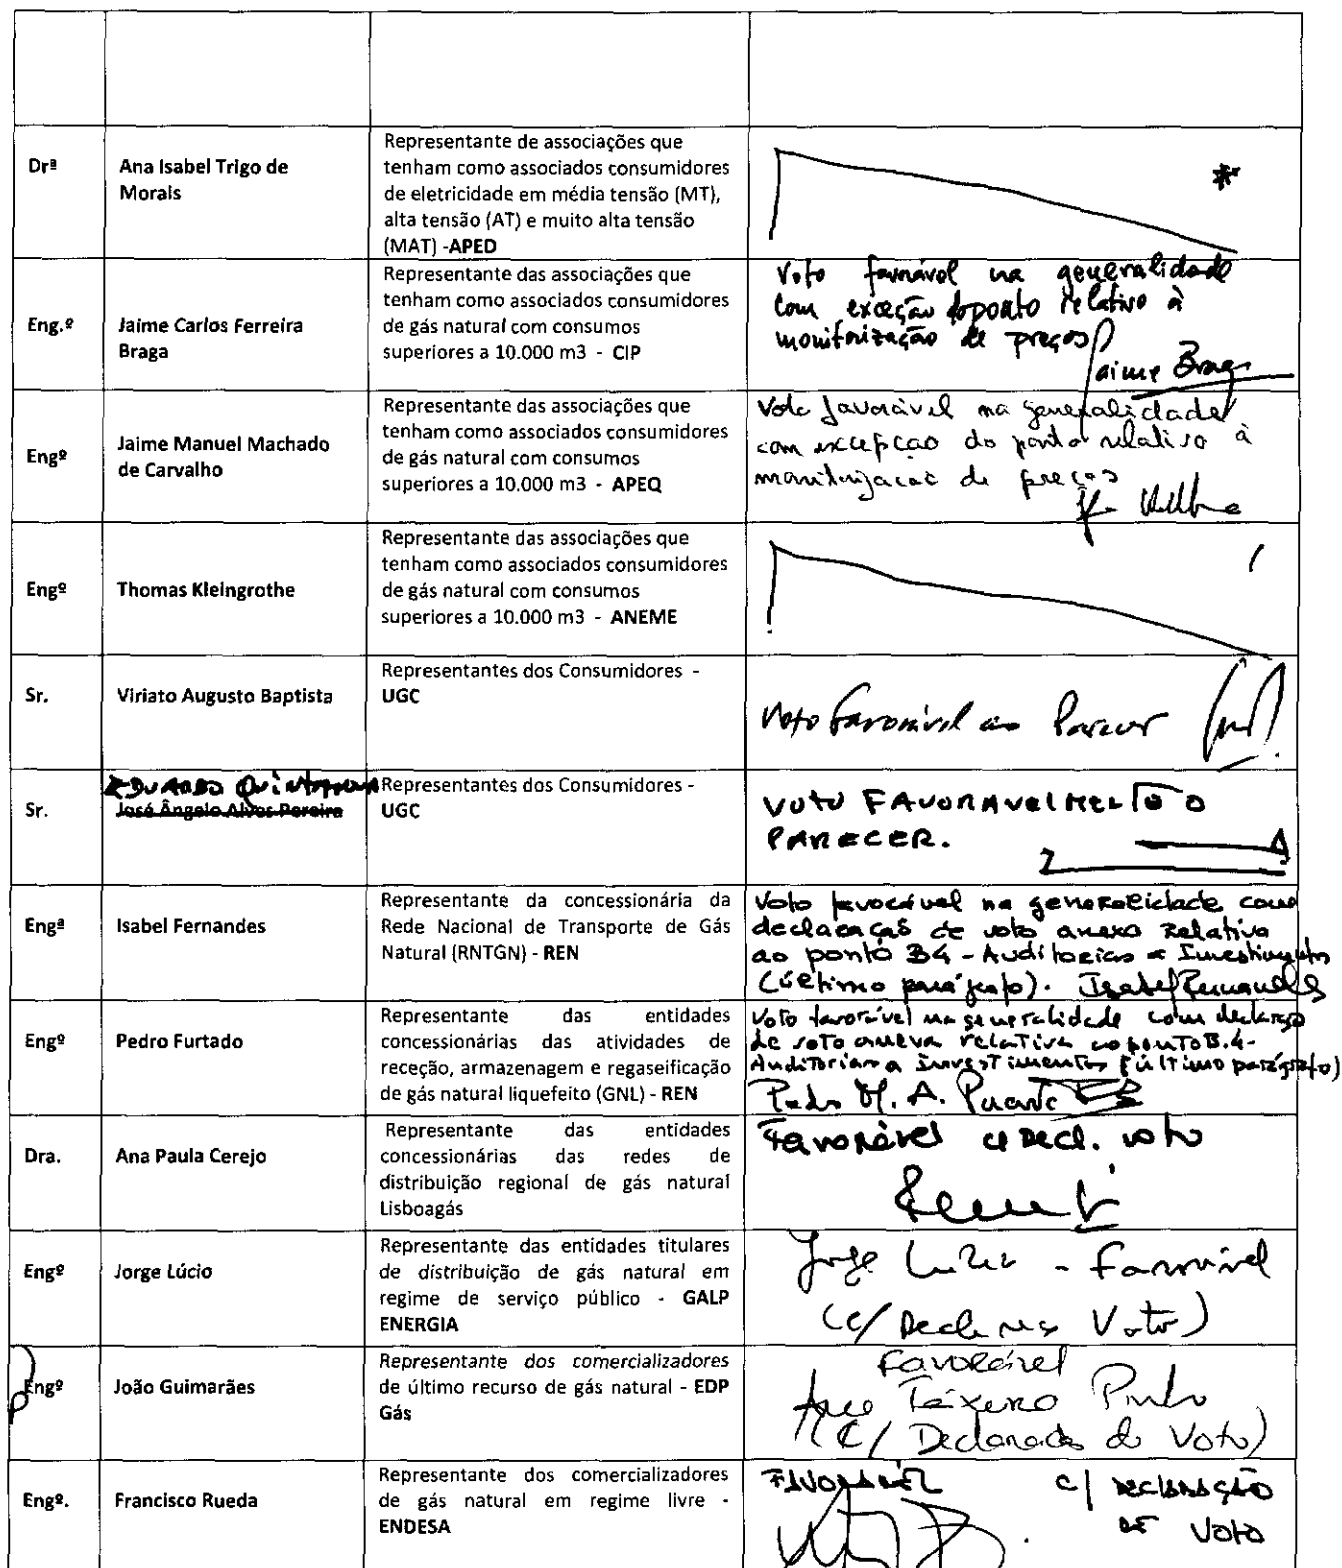 Drª
Ana Isabel Trigo de
Morais
Representante de associações que
tenham como associados consumidores
de eletricidade em média tensão (MT),
alta tensão (AT) e muito alta tensão
(MAT) -APED
*
Eng.º
Jaime Carlos Ferreira
Braga
Representante das associações que
tenham como associados consumidores
de gás natural com consumos
superiores a 10.000 m3 - CIP
Voto favorável na generalidade
com exceção do ponto relativo à
monitorização de preços
Jaime Braga
Engº
Jaime Manuel Machado
de Carvalho
Representante das associações que
tenham como associados consumidores
de gás natural com consumos
superiores a 10.000 m3 - APEQ
Voto favorável na generalidade
com excepcao do ponto relativo à
monitorizacao de preços
Engº
Thomas Kleingrothe
Representante das associações que
tenham como associados consumidores
de gás natural com consumos
superiores a 10.000 m3 - ANEME
Sr.
Viriato Augusto Baptista
Representantes dos Consumidores -
UGC
Voto favorável ao Parecer
Sr.
EDUARDO Quintanova
José Ângelo Alves Pereira
Representantes dos Consumidores -
UGC
VOTO FAVORAVELMENTE O
PARECER.
Engª
Isabel Fernandes
Representante da concessionária da
Rede Nacional de Transporte de Gás
Natural (RNTGN) - REN
Voto favorável na generalidade com
declaração de voto anexa relativa
ao ponto B4 - Auditorias a Investimentos
(último parágrafo). Isabel Fernandes
Engº
Pedro Furtado
Representante das entidades
concessionárias das atividades de
receção, armazenagem e regaseificação
de gás natural liquefeito (GNL) - REN
Voto favorável na generalidade com declaração
de voto anexa relativa ao ponto B.4-
Auditorias a Investimentos (último parágrafo)
Pedro M. A. Furtado
Dra.
Ana Paula Cerejo
Representante das entidades
concessionárias das redes de
distribuição regional de gás natural
Lisboagás
Favorável c/ Decl. voto
Engº
Jorge Lúcio
Representante das entidades titulares
de distribuição de gás natural em
regime de serviço público - GALP
ENERGIA
Jorge Lúcio - Favorável
(c/ Declaração Voto)
Engº
João Guimarães
Representante dos comercializadores
de último recurso de gás natural - EDP
Gás
Favorável
Ana Teixeira Pinto
(C/ Declaração de Voto)
Engº.
Francisco Rueda
Representante dos comercializadores
de gás natural em regime livre -
ENDESA
FAVORÁVEL c/ DECLARAÇÃO
DE VOTO